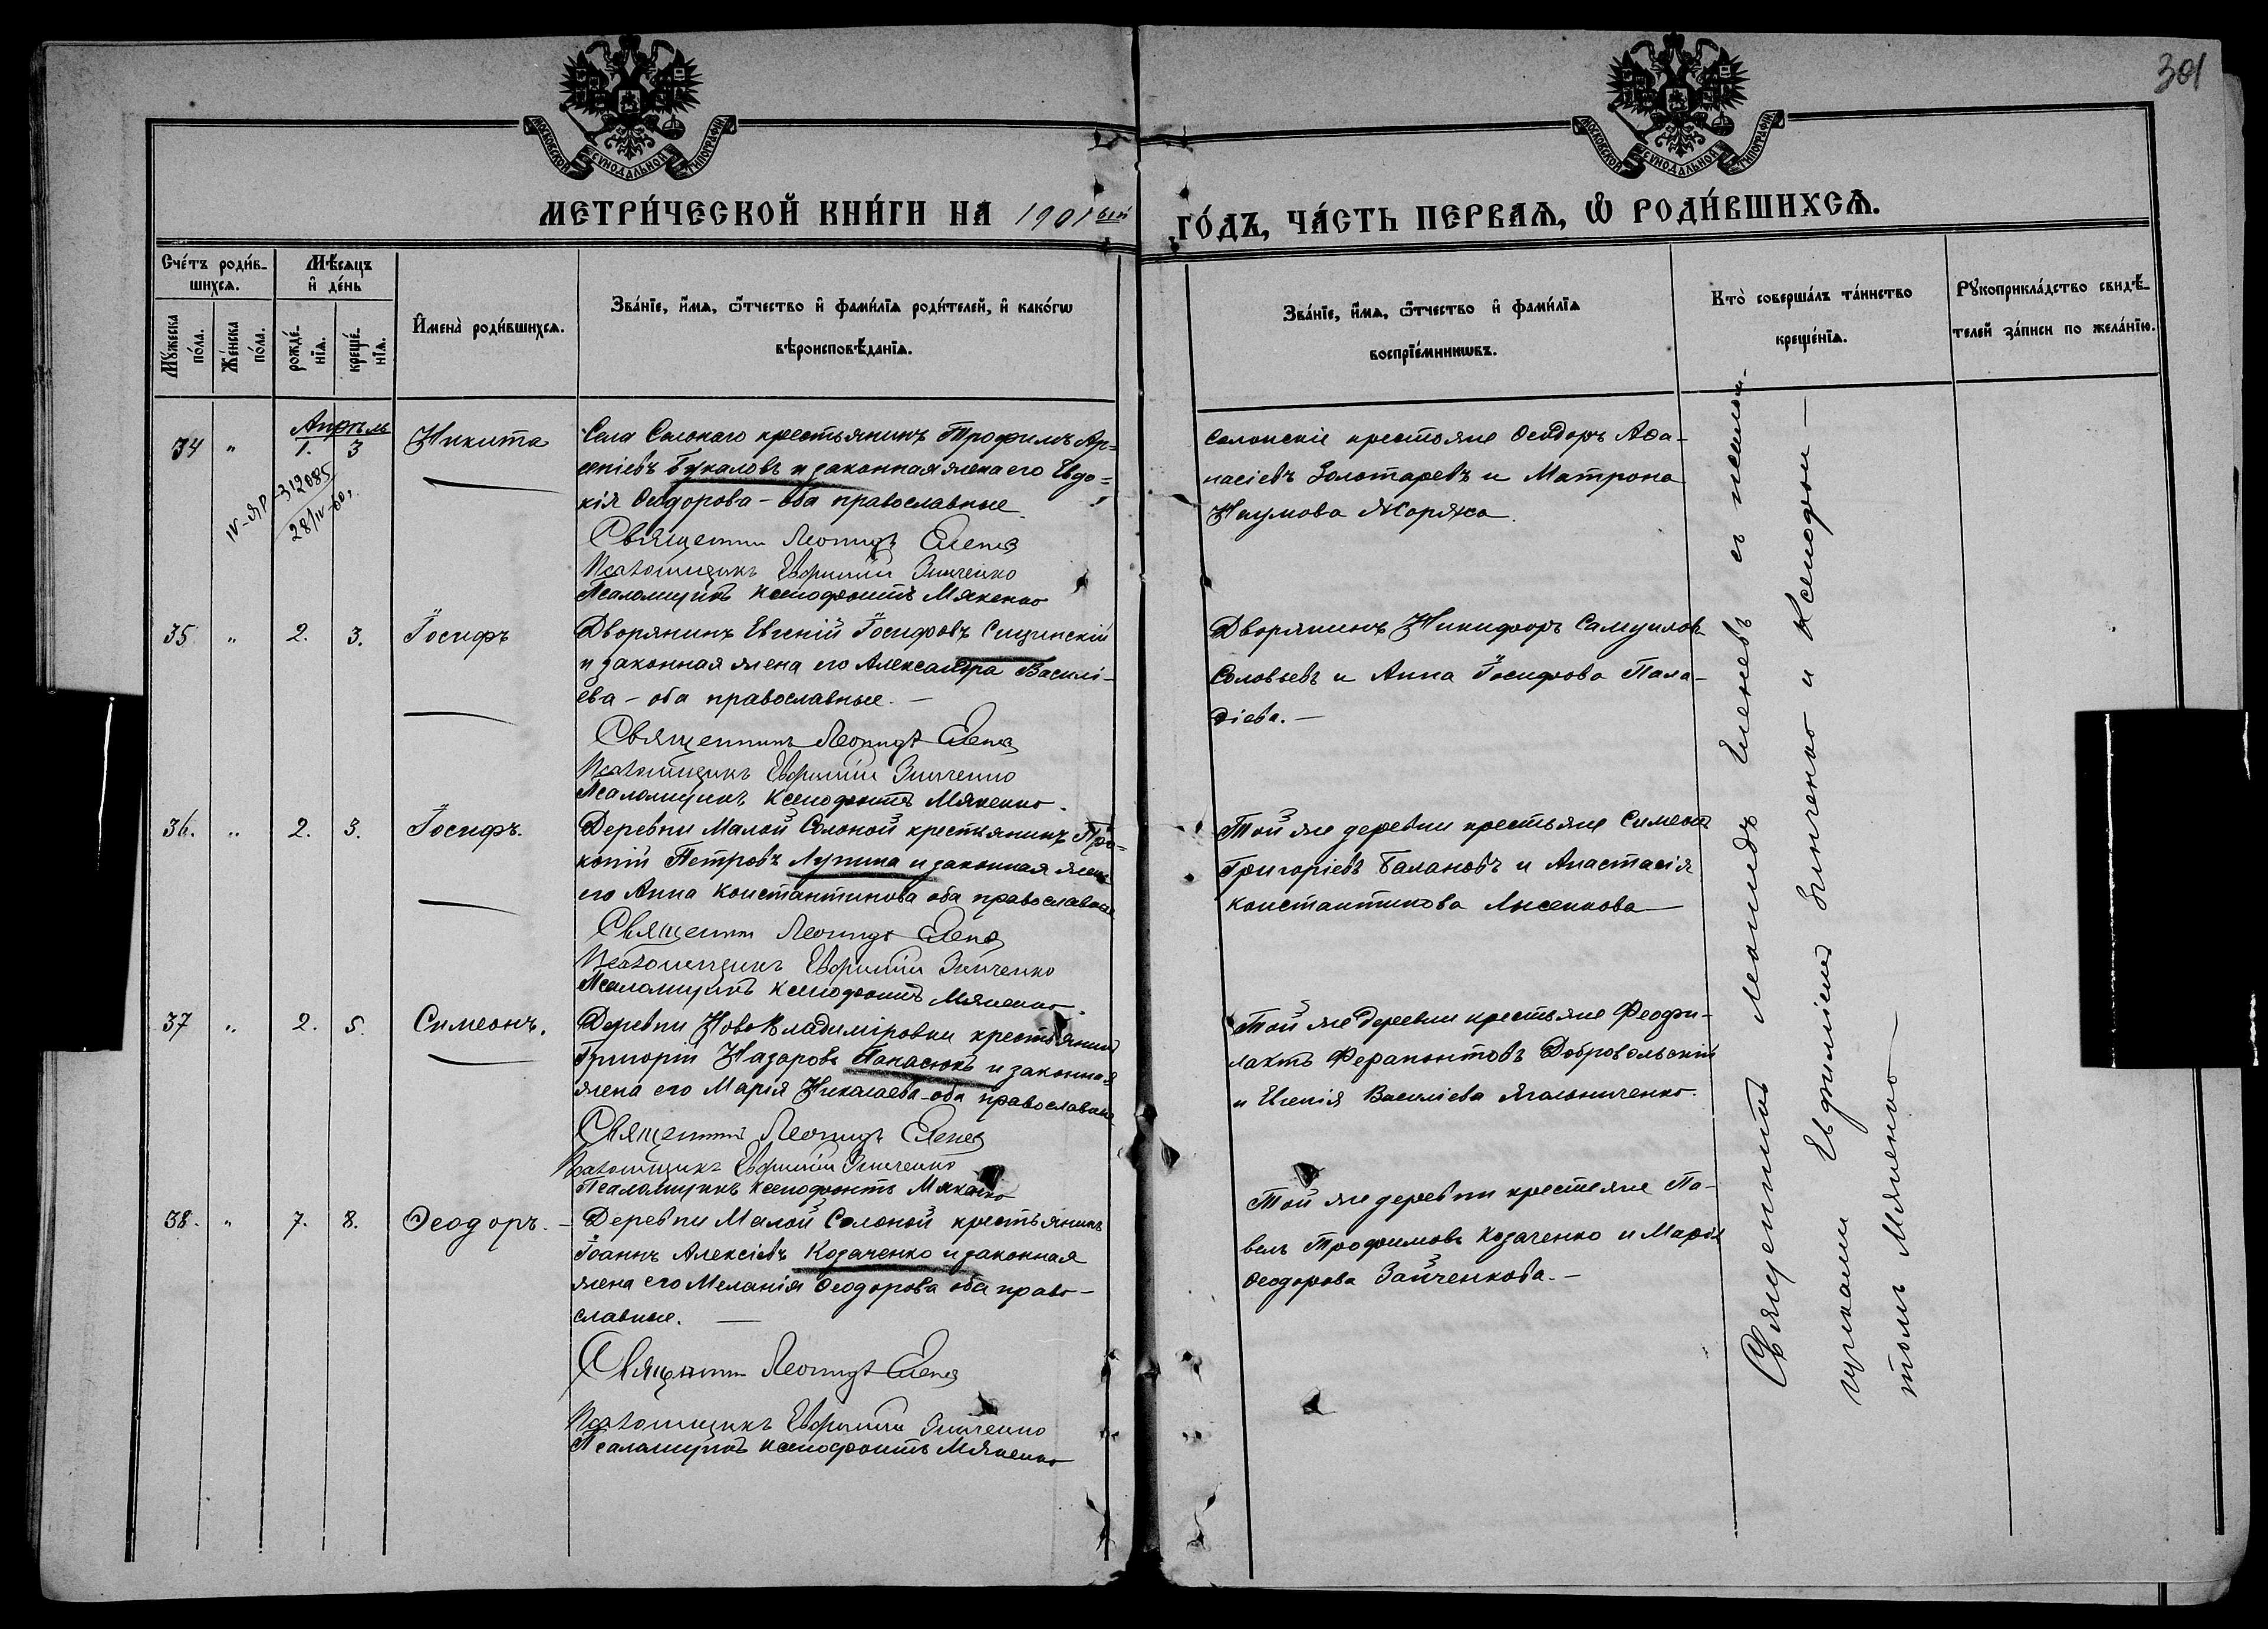 301
МОСКОВСКОЙ СѴНОДАЛЬНОЙ ТИПОГРАФІИ
МОСКОВСКОЙ СѴНОДАЛЬНОЙ ТИПОГРАФІИ
МЕТРИ́ЧЕСКОЙ КНИ́ГИ НА 1901ый ГО́ДЪ, ЧА́СТЬ ПЕРВАѦ, Ѡ҆ РОДИ́ВШИХСѦ.
Сче́тъ роди́в-
шихсѧ.
Мꙋ́жеска
по́ла.
Же́нска
по́ла.
Мѣ́сѧцъ
и҆ де́нь
рожде́-
нїѧ.
креще́-
нїѧ.
И҆мена̀ роди́вшихсѧ.
Зва́нїе, и҆́мѧ, ѻ҆́тчество и҆ фами́лїѧ роди́телей, и҆ како́гѡ
вѣроисповѣ́данїѧ.
Зва́нїе, и҆́мѧ, ѻ҆́тчество и҆ фами́лїѧ
воспрїе́мникѡвъ.
Кто̀ соверша́лъ та́инство
креще́нїѧ.
Рꙋкоприкла́дство свидѣ́-
телей за́писи по жела́нїю.
Апрѣль
34 " 1. 3 Никита
IV-ЯР-312085
28/IV-60г
Села Солонаго крестьянинъ Трофимъ Ар-
сеніевъ Букаловъ и законная жена его Евдо-
кія Ѳеодорова - оба православные
Священникъ Леонидъ Еленевъ
Псаломщикъ Евфимій Зинченко
Псаломщикъ Ксенофонтъ Мякенко
Солонскіе крестьяне Ѳеодоръ Аѳа-
насіевъ Золотаревъ и Матрона
Наумова Моряка.
35 " 2. 3. Іосифъ
Дворянинъ Евгеній Іосифовъ Сицинскій
и законная жена его Александра Василі-
ева - оба православные. -
Священникъ Леонидъ Еленевъ
Псаломщикъ Евфимій Зинченко
Псаломщикъ Ксенофонтъ Мякенко.
Дворянинъ Никифоръ Самуиловъ
Соловьевъ и Анна Іосифова Пала-
діева. -
36. " 2. 3. Іосифъ.
Деревни Малой Солоной крестьянинъ Про-
копій Петровъ Лупина и законная жена
его Анна Константинова оба православные
Священникъ Леонидъ Еленевъ
Псаломщикъ Евфимій Зинченко
Псаломщикъ Ксенофонтъ Мякенко.
Той же деревни крестьяне Симеонъ
Григоріевъ Балановъ и Анастасія
Константинова Лысенкова
37 " 2. 5. Симеонъ.
Деревни Ново Владиміровки крестьянинъ
Григорій Назаровъ Панасюкъ и законная
жена его Марія Николаева - оба православные
Священникъ Леонидъ Еленевъ
Псаломщикъ Евфимій Зинченко
Псаломщикъ Ксенофонтъ Мякенко
Той же деревни крестьяне Феофи-
лактъ Ферапонтовъ Добровольскій
и Евгенія Василіева
38. " 7. 8. Ѳеодоръ. -
Деревни Малой Солоной крестьянинъ
Іоаннъ Алексіевъ Козаченко и законная
жена его Меланія Ѳеодорова оба право-
славные.
Священникъ Леонидъ Еленевъ
Псаломщикъ Евфимій Зинченко
Псаломщикъ Ксенофонтъ Мякенко
Той же деревни крестьяне Па-
велъ Трофимовъ Козаченко и Марія
Ѳеодорова Зайченкова. -
Священникъ Леонидъ Еленевъ съ псалом-
щиками Евфиміемъ Зинченко и Ксенофон-
томъ Мякенко